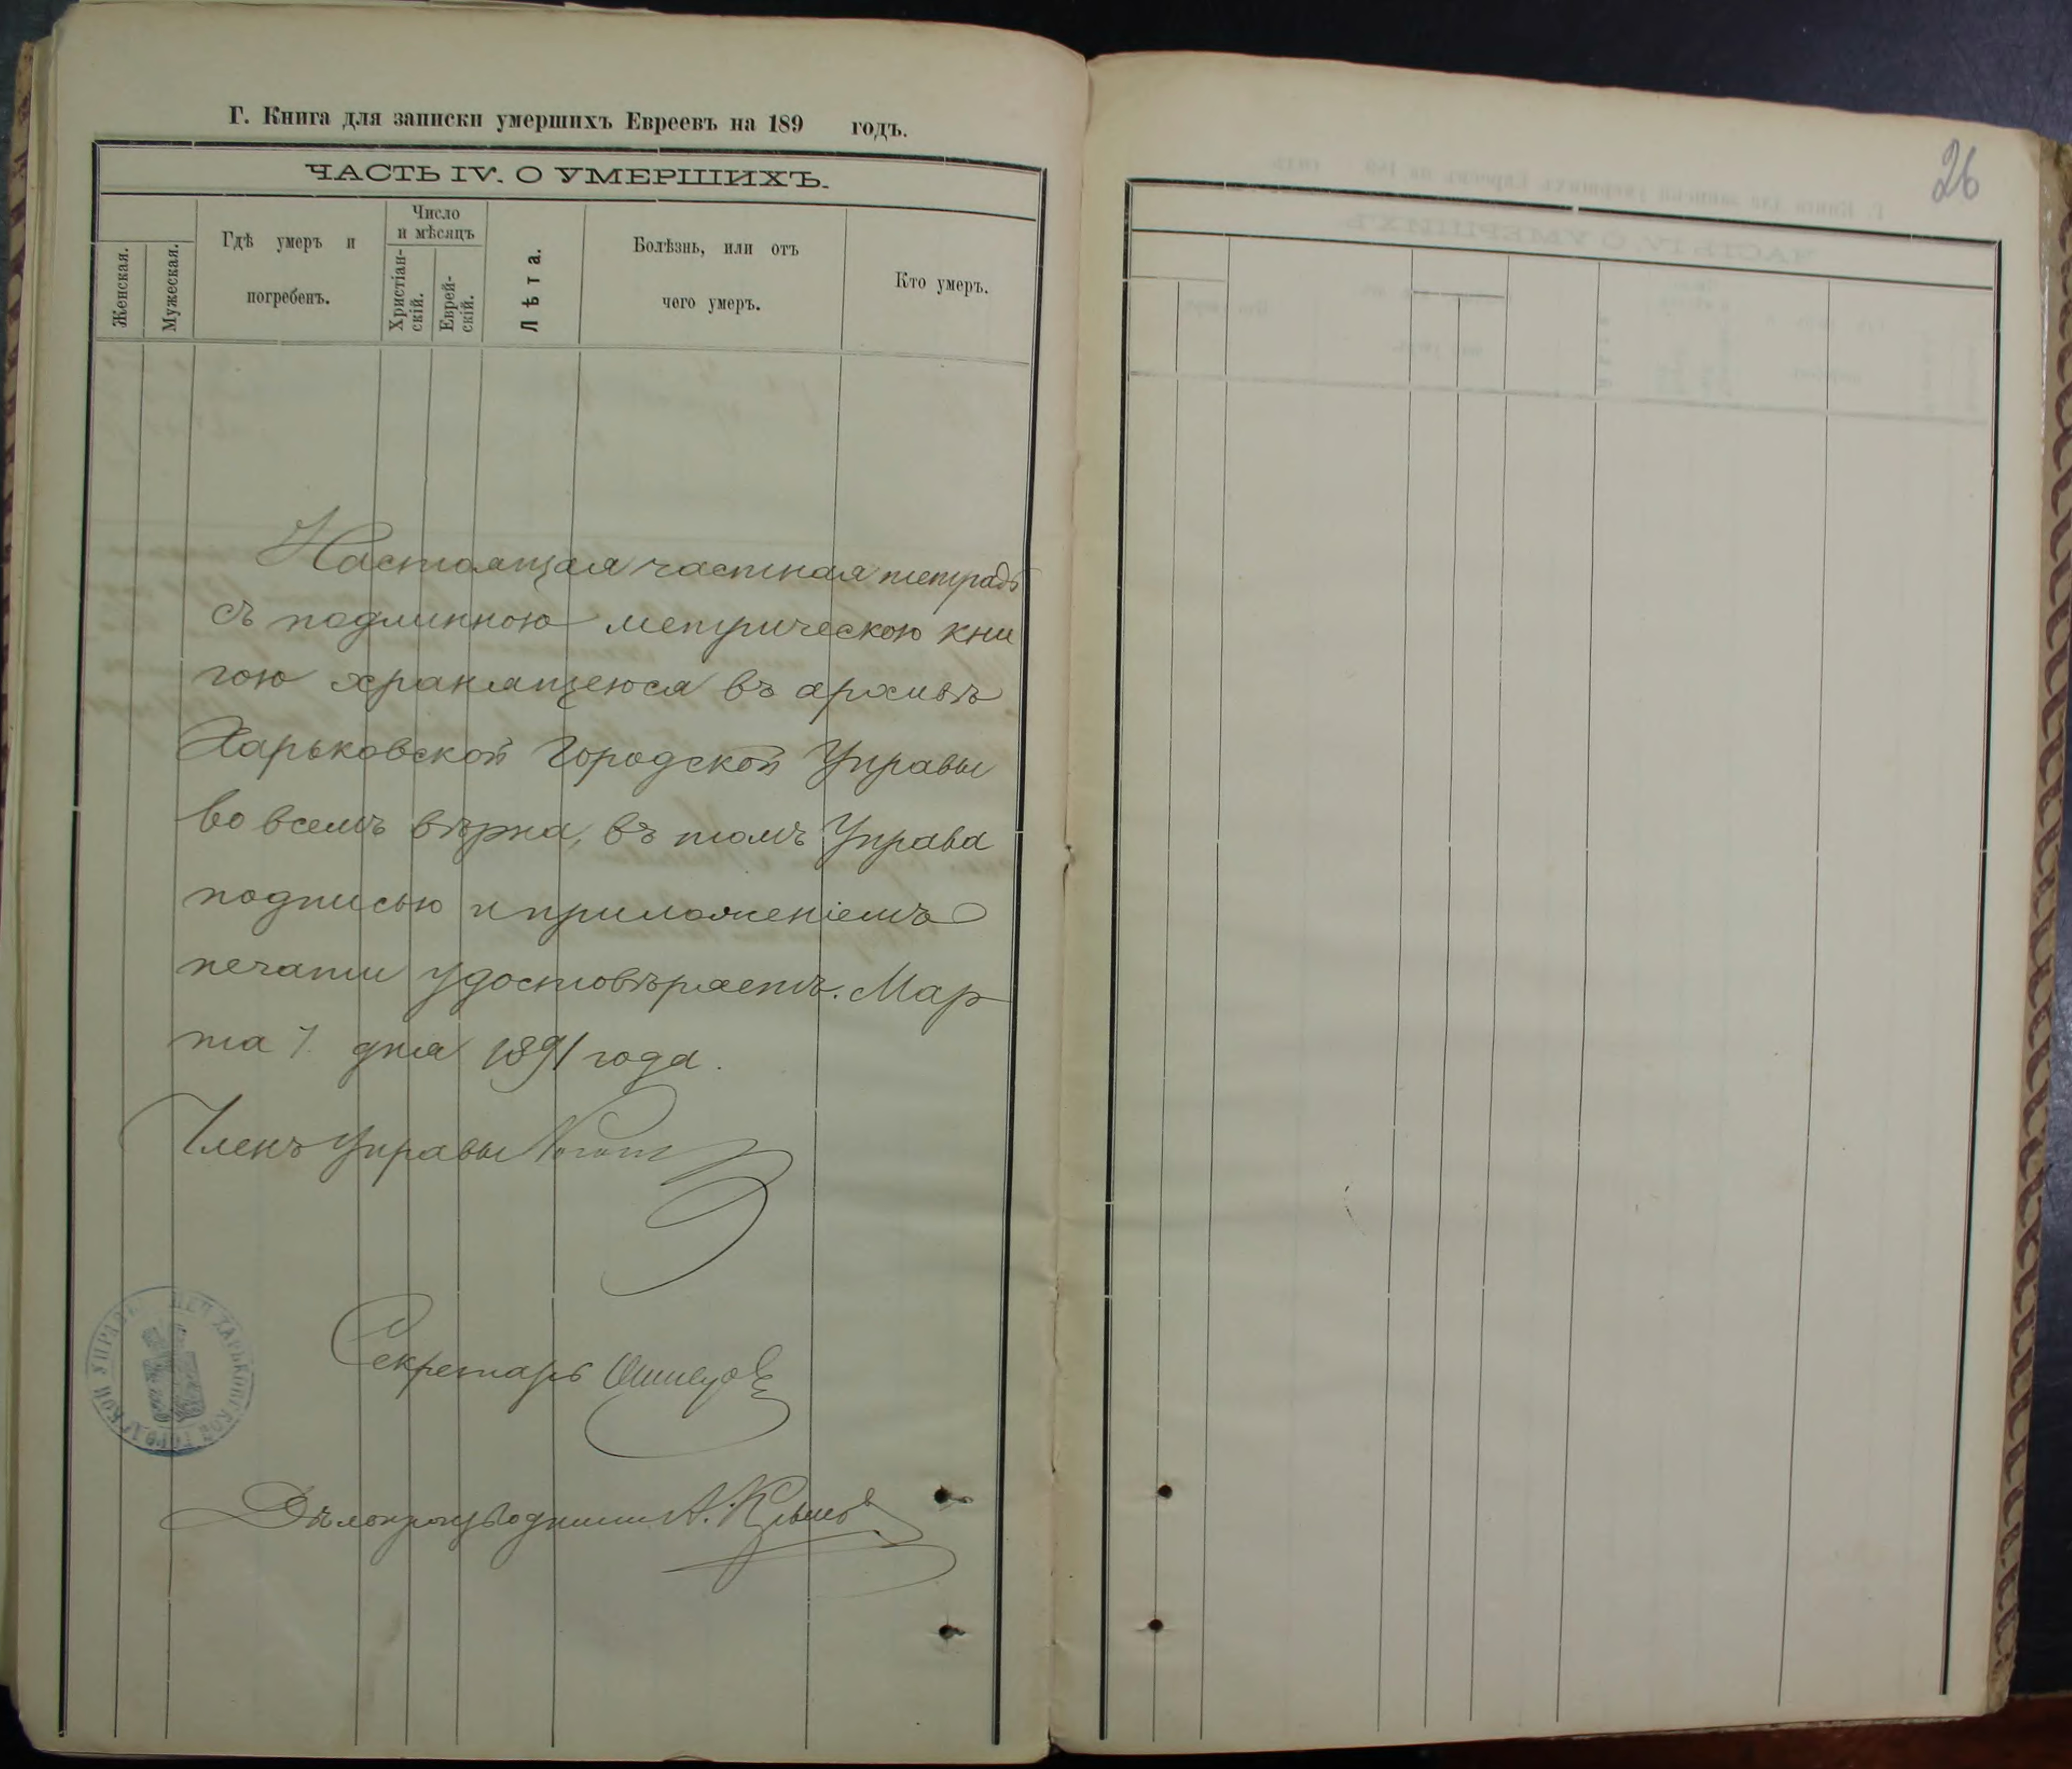 Г. Книга для записки умершихъ Евреевъ на 189 годъ.
ЧАСТЬ IV. О УМЕРШИХЪ.
Женская.
Мужеская.
Гдѣ умеръ и
погребенъ.
Число
и мѣсяцъ
Христіан-
скій.
Еврей-
скій.
Лѣта.
Болѣзнь, или отъ
чего умеръ.
Кто умеръ.
Настоящая частная тетрадь
съ подлинною метрическою кни
гою хранящеюся въ архивѣ
Харьковской Городской Управы
во всемъ вѣрна, въ томъ Управа
подписью и приложеніемъ
печати удостовѣряетъ. Мар
та 7 дня 1891 года.
Членъ Управы
Секретарь
Дѣлопроизводитель А.
ПЕЧ. ХАРЬКОВСКОЙ ГОРОДСКОЙ УПРАВЫ
26